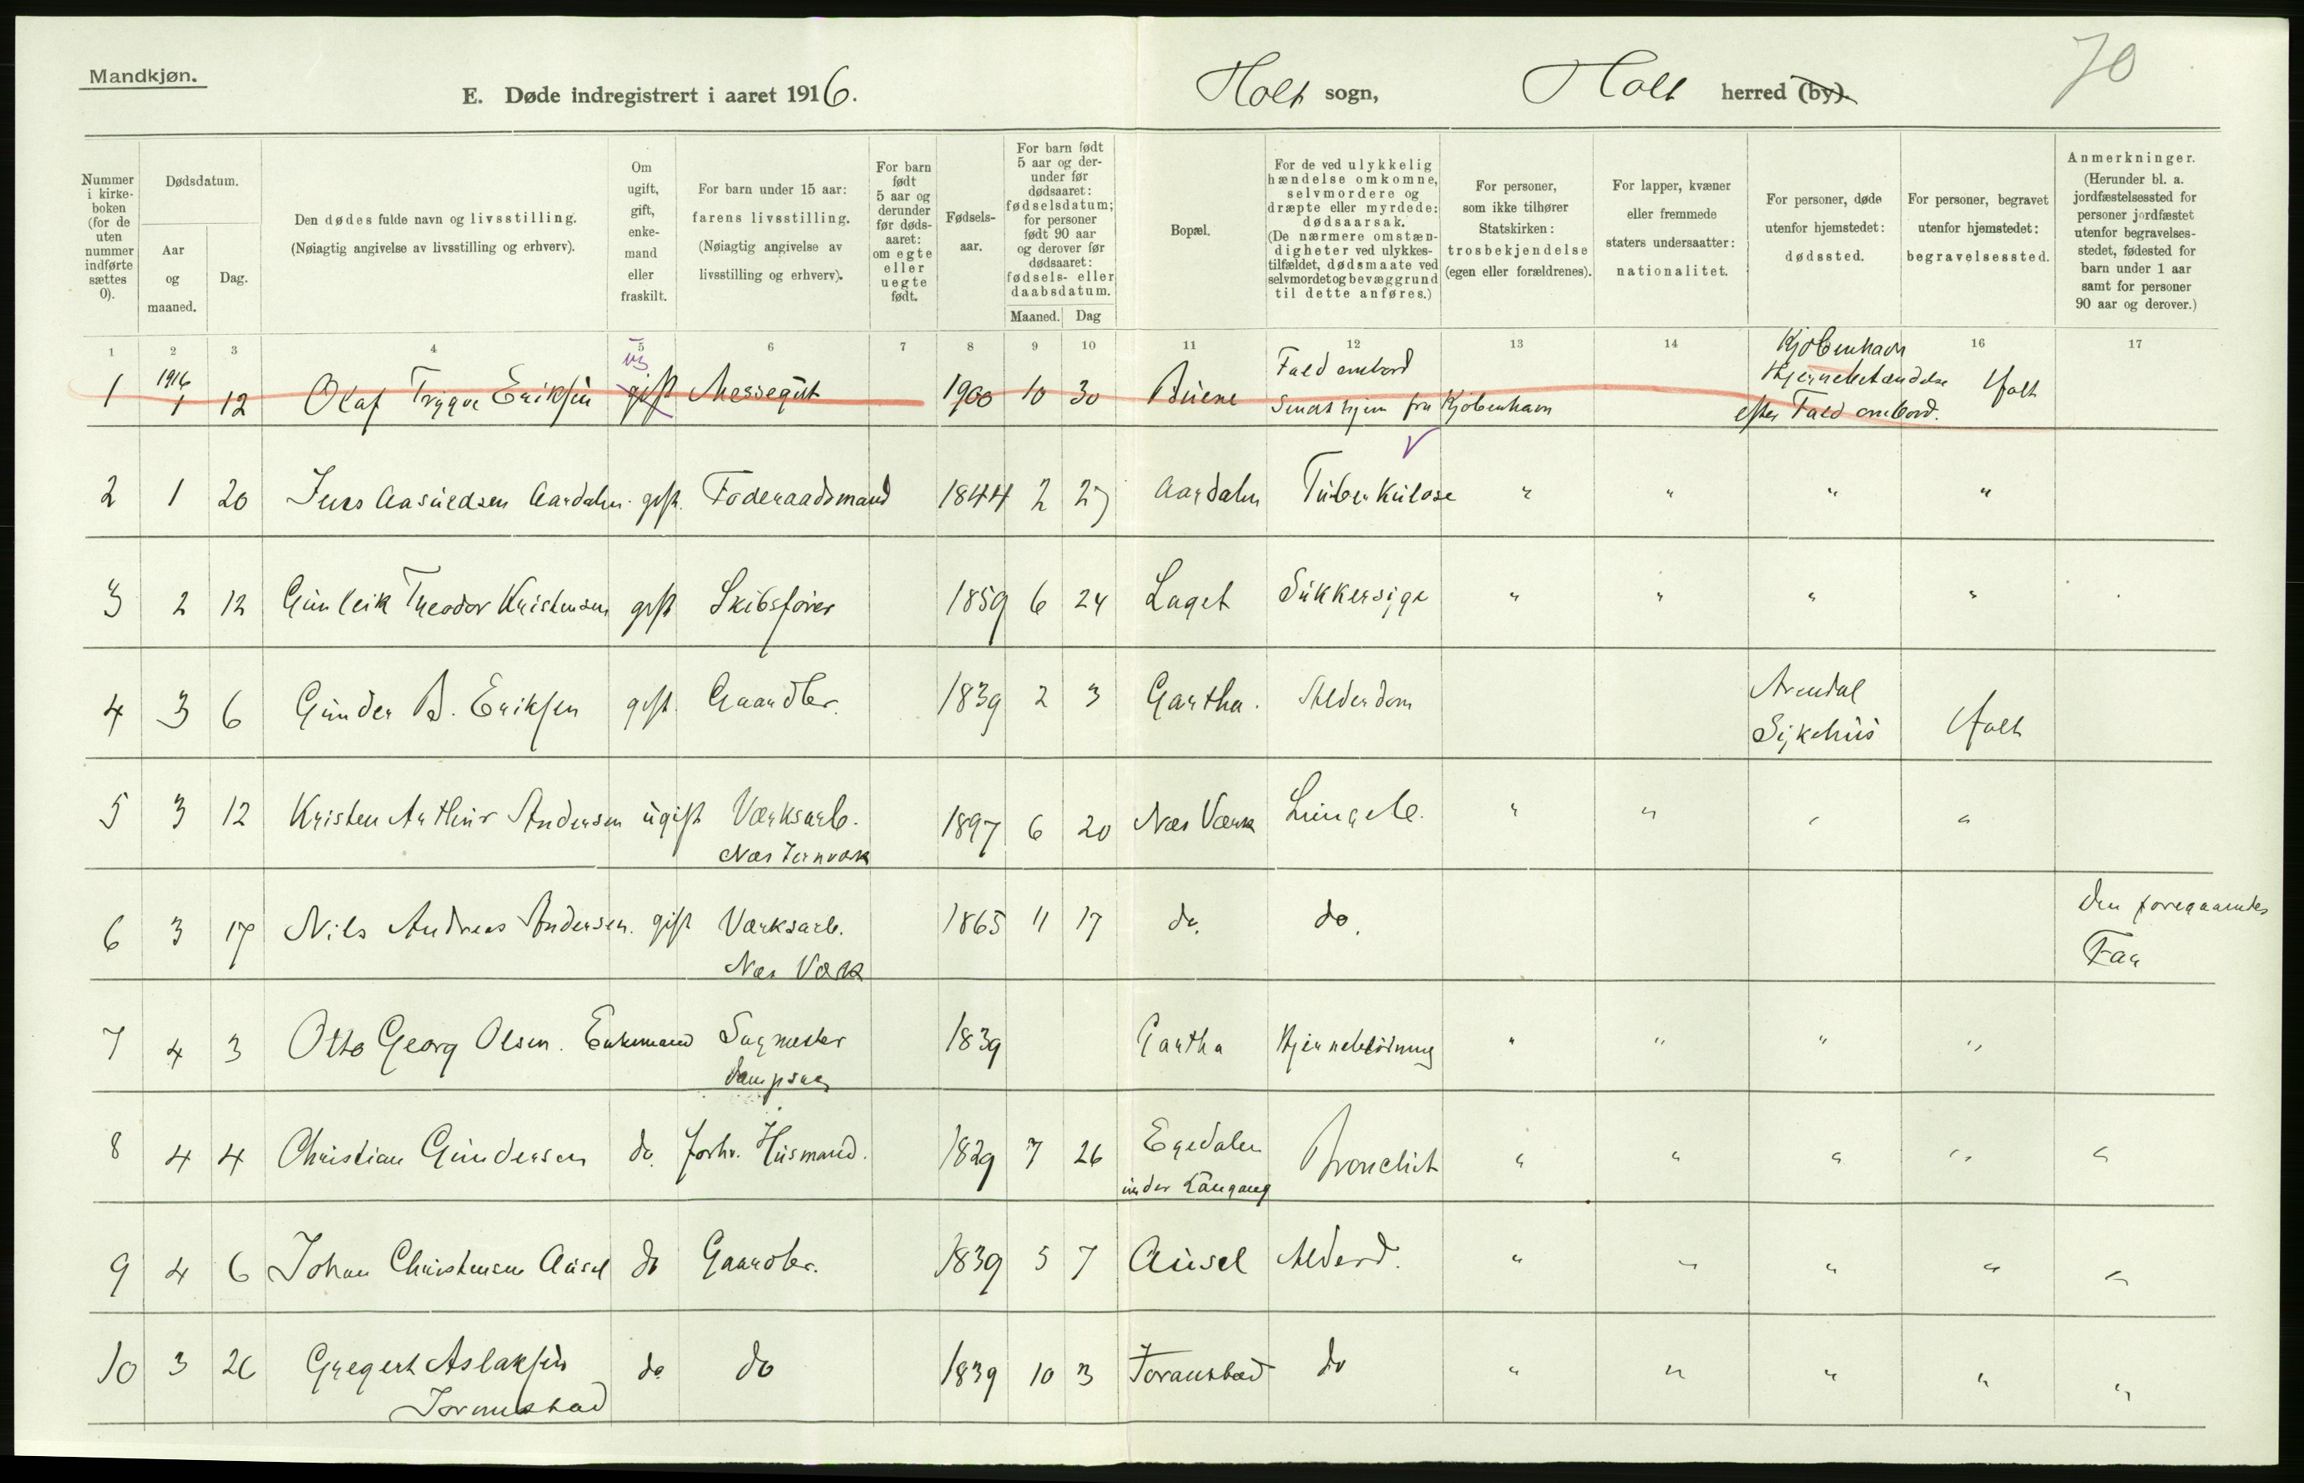 70
Mandkjøn.
E. Døde indregistrert i aaret 1916. Holt sogn, Holt herred (by).
Nummer i kirkeboken (for de uten nummer indførte sættes 0).
Dødsdatum.
Aar og maaned.
Dag.
Den dødes fulde navn og livsstilling.
(Nøiagtig angivelse av livsstilling og erhverv).
Om ugift, gift, enkemand eller fraskilt.
For barn under 15 aar: farens livsstilling.
(Nøiagtig angivelse av livsstilling og erhverv).
For barn født 5 aar og derunder før dødsaaret: om egte eller uegte født.
Fødselsaar.
For barn født 5 aar og derunder før dødsaaret: fødselsdatum; for personer født 90 aar og derover før dødsaaret: fødsels- eller daabsdatum.
Maaned. Dag
Bopæl.
For de ved ulykkelig hændelse omkomne, selvmordere og dræpte eller myrdede: dødsaarsak. (De nærmere omstændigheter ved ulykkestilfældet, dødsmaate ved selvmordet og bevæggrund til dette anføres.)
For personer, som ikke tilhører Statskirken: trosbekjendelse (egen eller forældrenes).
For lapper, kvæner eller fremmede staters undersaatter: nationalitet.
For personer, døde utenfor hjemstedet: dødssted.
For personer, begravet utenfor hjemstedet: begravelsessted.
Anmerkninger. (Herunder bl. a. jordfæstelsessted for personer jordfæstet utenfor begravelsesstedet, fødested for barn under 1 aar samt for personer 90 aar og derover.)
1 2 3 4 5 6 7 8 9 10 11 12 13 14 15 16 17
1 1916 1 12 Olaf Trygve Eriksen gift ug Messegut 1900 10 30 Buene Fald ombord Sendt hjem fra Kjøbenhavn Kjøbenhavn Hjernebetændelse efter Fald ombord. Holt
2 1 20 Jens Aasuldsen Aardalen gift. Føderaadsmand 1844 2 27 Aardalen Tuberkulose " " " "
3 2 12 Gunleik Theodor Kristensen gift Skibsfører 1859 6 24 Laget Sukkersyge " " " "
4 3 6 Gunder B. Eriksen gift. Gaardbr. 1839 2 3 Gartha. Alderdom Arendal Sykehus Holt
5 3 12 Kristen Arthur Andersen ugift Værksarb. Næs Jernværk 1897 6 20 Næs Værk Lungeb. " " " "
6 3 17 Nils Andreas Andersen. gift Værksarb. Næs Værk 1865 11 17 do. do. den foregaaendes Far
7 4 3 Otto Georg Olsen. Enkemand Sagmester Dampsag 1839 Gartha Hjerneblødning " " " "
8 4 4 Christian Gundersen do. forhv. Husmand. 1829 7 26 Egedalen under Langang Bronchit " " " " "
9 4 6 Johan Christensen Ausel do Gaardbr. 1839 5 7 Ausel Alderd. " " " " "
10 3 26 Gregert Aslaksen Joranstad do. do 1839 10 3 Joranstad do " " " " "